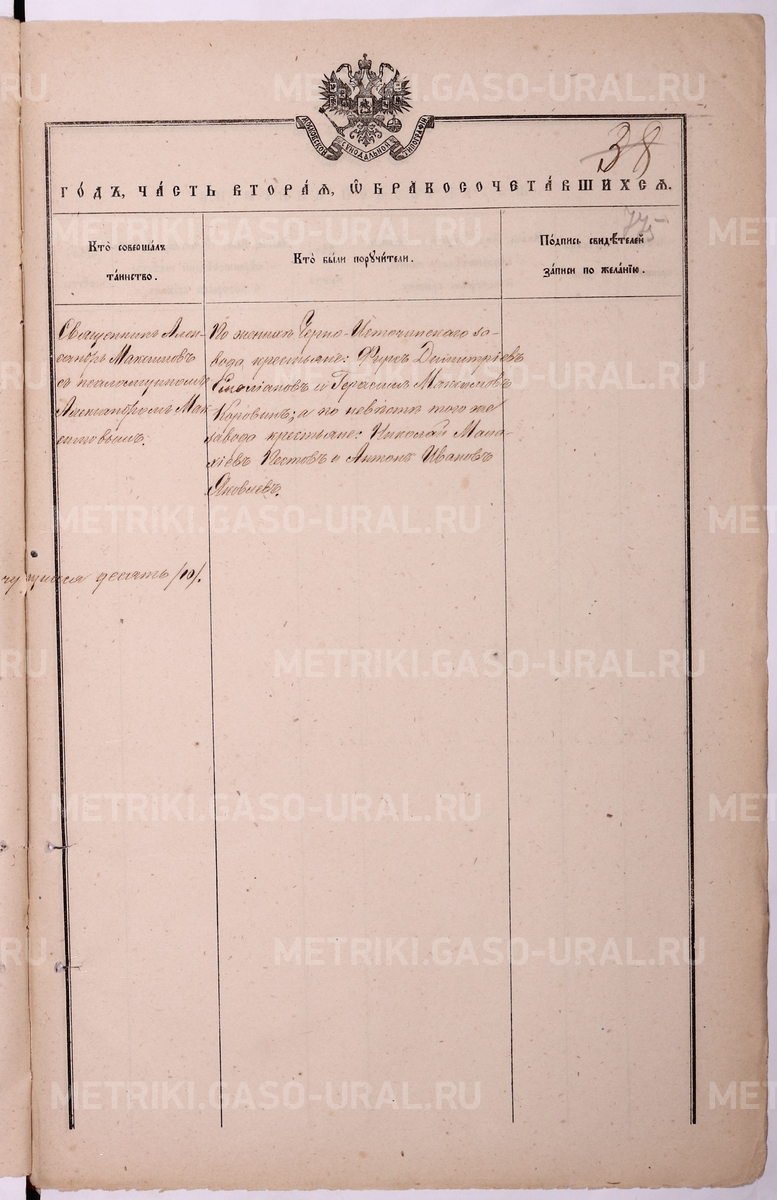 МОСКОВСКОЙ СѴНОДАЛЬНОЙ ТИПОГРАФІИ
38
ГО́ДЪ, ЧА́СТЬ ВТОРА́Я, Ѡ҆ БРАКОСОЧЕТА́ВШИХСЯ.
775
Кто̀ соверша́лъ
та́инство.
Кто̀ бы́ли поручи́тели.
По́дпись свидѣ́телей
за́писи по жела́нїю.
Священникъ Алек-
сандръ Максимовъ
съ псаломщикомъ
Александромъ Мак-
симовымъ.
По женихѣ Черно-Источинскаго за-
вода крестьяне: Фирсъ Димитріевъ
и Герасимъ Максимовъ
Коровинъ; а по невѣстѣ того же
завода крестьяне: Николай Мала-
хіевъ Пестовъ и Антонъ Ивановъ
Яковлевъ.
десять /10/.
METRIKI.GASO-URAL.RU